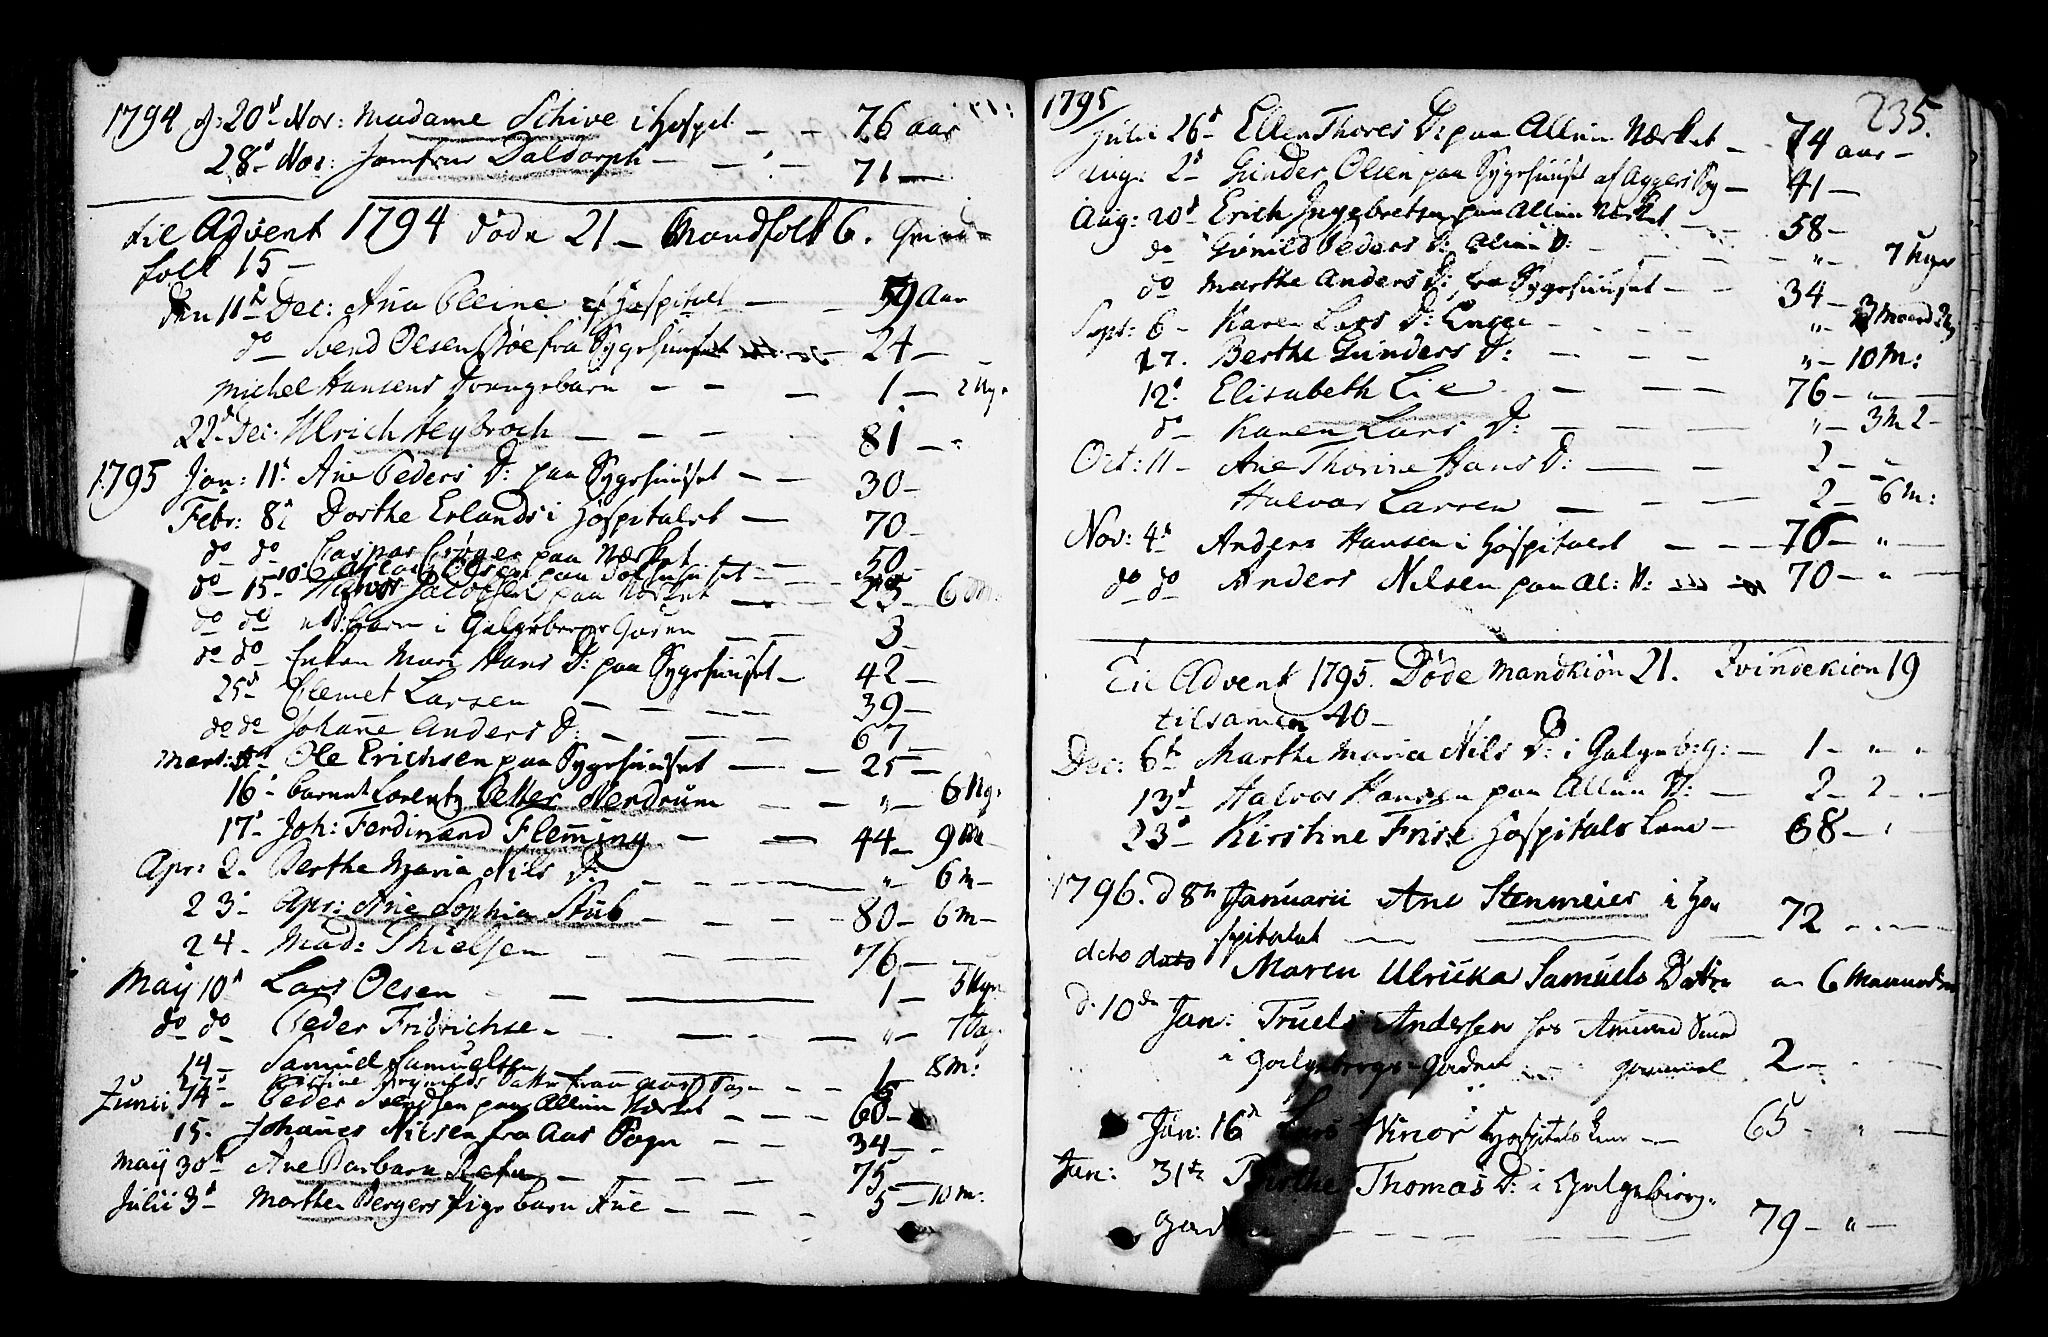 1794 d: 20d Nov: Madame Schive i Hospit — — 76 aar
28d Nov: Jomfrue Daldorph — — 71 —
til Advent 1794 döde 21 — Mandfolk 6. Qvind-
folk 15 —
den 11te Dec: Ana Pleine af Hospitalet — — Aar
do — Svend Olsen Böe fra Sygehuuset — 24 —
Michel Hansens Drengebarn — — — 1 — 2 Ug:
22d Dec: Ulrich Heybroch — — — 81 —
1795 Jan: 11t Ane Peders D: paa Sygehuuset — — 30 —
Febr: 8d Dorthe Erlands i Hospitalet — 70 —
do do Caspar paa Værket — 50 —
do 15d Halvor Jacobsen paa Værket — — 6 M:
do do et Barn i Galgeberg Gaden — — 3 —
do do Enken Mari Hans D: paa Sygehuuset — 42 —
25d Clemet Larsen — — — 39 —
do do Johane Anders D: — — — 67 —
Mart: Ole Erichsen paa Sygehuuset — — 25 —
16d barnet Lorentz Petter Nendrum — — „ — 6 Ug:
17d Joh: Ferdinand Flem̄ing — — 44 — 9 M —
Apr: 2. Berthe Maria Nils D: — — „ — 6 m —
23 — Apr: Ane Sophia Stub — — — 80 — 6 m —
24 — Mad: Thielsen — — — 76 — —
May 10d Lars Olsen — — 1 — 3 Uger
do do Peder Fridrichse — — — „ — 7 Dag
14 — Samuel Samuelsen — 1 — 8 m:
Junii 14 — Peder Svendsen paa Allun Værket — — — 60 —
15. Johanes Nilsen fra Aas Sogn — — 34 —
May 30te Ane Barbara — — — 75 —
Julii 3d Marthe Bergers Pige barn Ane — — — 5 — 10 m:
1795 235.
Julii 26d Ellen Thores D: paa Allun Værket — 74 aar —
Aug: 2d Gunder Olsen paa Sygehuuset af Aggers Sog — 41 —
Aug: 20d Erich Ingebretsen paa Allun Værket — 58 —
do Gunild Peders D: Allun V: — — — „ — 7 Uger
do Marthe Anders D: fra Sygehuuset — — 34 —
Sept: 6 — Karen Lars D: Enger — — — „ — 3 Maaned
17. Berthe Gunders D: — — — „ — 10 M:
12t Elisabeth Lie — — 76 — „ —
do — Karen Lars D: — — — „ — 3 M 2 —
Oct: 11 — Ane Thorine Hans D: — — 2 — „
Halvor Larsen — — — 2 — 6 m:
Nov: 4d Anders Hansen i Hospitalet — — — 76 — „ —
do do Anders Nilsen paa Al: V: — 70 — „ —
Til Advent 1795. Döde Mandkiön 21. Qvindekiön 19
tilsamen 40 —
Dec: 6te Marthe Maria Nils D: i Galgeb:g: — 1 — „ „
13d Halvor Hansen paa Allun V: — 2 — 2 —
23d Kirstine Frise Hospitals Lem — 68 —
1796. d 8te Januarii Ane Stenmeier i Ho-
spitalet — — 72 — —
dito dato Maren Ulricka Samuels Dotter — 6 Maaneder
d. 10de Jan: Truels Andersen hos Amund
i Galgebergs Gaden gammel 2 —
Jan: 16d Lars Winor Hospitals Lem — 65 — „ —
Jan: 31te Thomas D: i Galgebierg-
Gad — — — — 79 — „ —